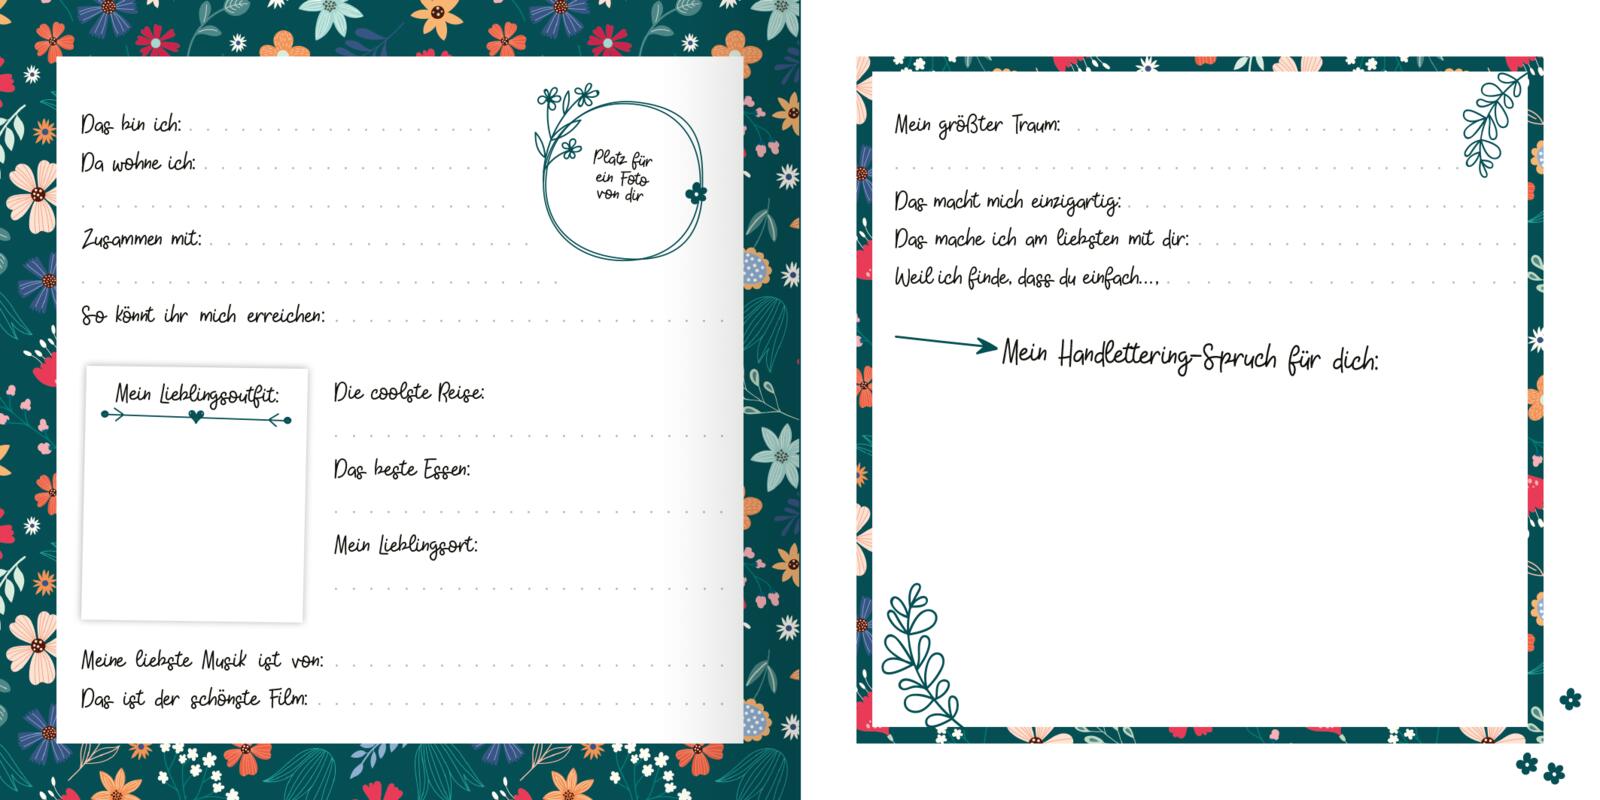 Das bin ich:
Da wohne ich:
Zusammen mit:
So könnt ihr mich erreichen:
Platz für
ein Foto
von dir
Mein Lieblingsoutfit:
Die coolste Reise:
Das beste Essen:
Mein Lieblingsort:
Meine liebste Musik ist von:
Das ist der schönste Film:
Mein größter Traum:
Das macht mich einzigartig:
Das mache ich am liebsten mit dir:
Weil ich finde, dass du einfach...,
Mein Handlettering-Spruch für dich: